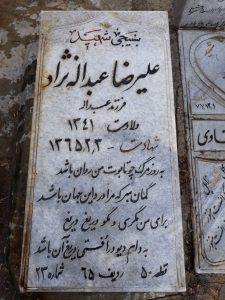 بسیجی شهید
علیرضا عبداله نژاد
فرزند عبداله
ولادت ۱۳۴۱
شهادت ۱۳۶۵٫۲٫۲
به روز مرگ چو تابوت من روان باشد
گمان مبر که مرا درد این جهان باشد
برای من مگری و مگو دریغ دریغ
به دام دیو درافتی دریغ آن باشد
قطعه ۵۰ ردیف ۶۵ شماره ۲۳